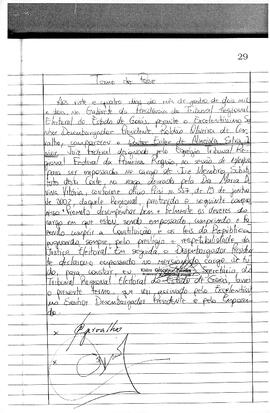 29
Termo de Posse
Aos vinte e quatro dias do mês de junho de dois mil
e dois, no Gabinete da Presidência do Tribunal Regional
Eleitoral do Estado de Goiás, perante o Excelentíssimo Se-
nhor Desembargador Presidente Roldão Oliveira de Car-
valho, compareceu o Doutor Euler de Almeida Silva
Juiz Federal designado pelo Egrégio Tribunal Re-
gional Federal da Primeira Região, na sessão de
para ser empossado no cargo de Juiz Membro Substi-
tuto desta Corte, na vaga deixada pela Dra. Maria D
Vitória, conforme ofício nº 557, de 13 de junho
de 2002, daquele Regional, proferindo o seguinte compro-
misso: "Prometo desempenhar bem e fielmente os deveres do
cargo em que estou sendo empossado, cumprindo e fa-
zendo cumprir a Constituição e as leis da República
pugnando sempre pelo prestígio e respeitabilidade da
Justiça Eleitoral". Em seguida o Desembargador Presiden-
te declarou empossado no mencionado cargo. Do que
para constar, eu Secretária do
Tribunal Regional Eleitoral do Estado de Goiás, lavrei
o presente termo que vai assinado pelo Excelentíssi-
mo Senhor Desembargador Presidente e pelo Empossa-
do.
x Carvalho
x